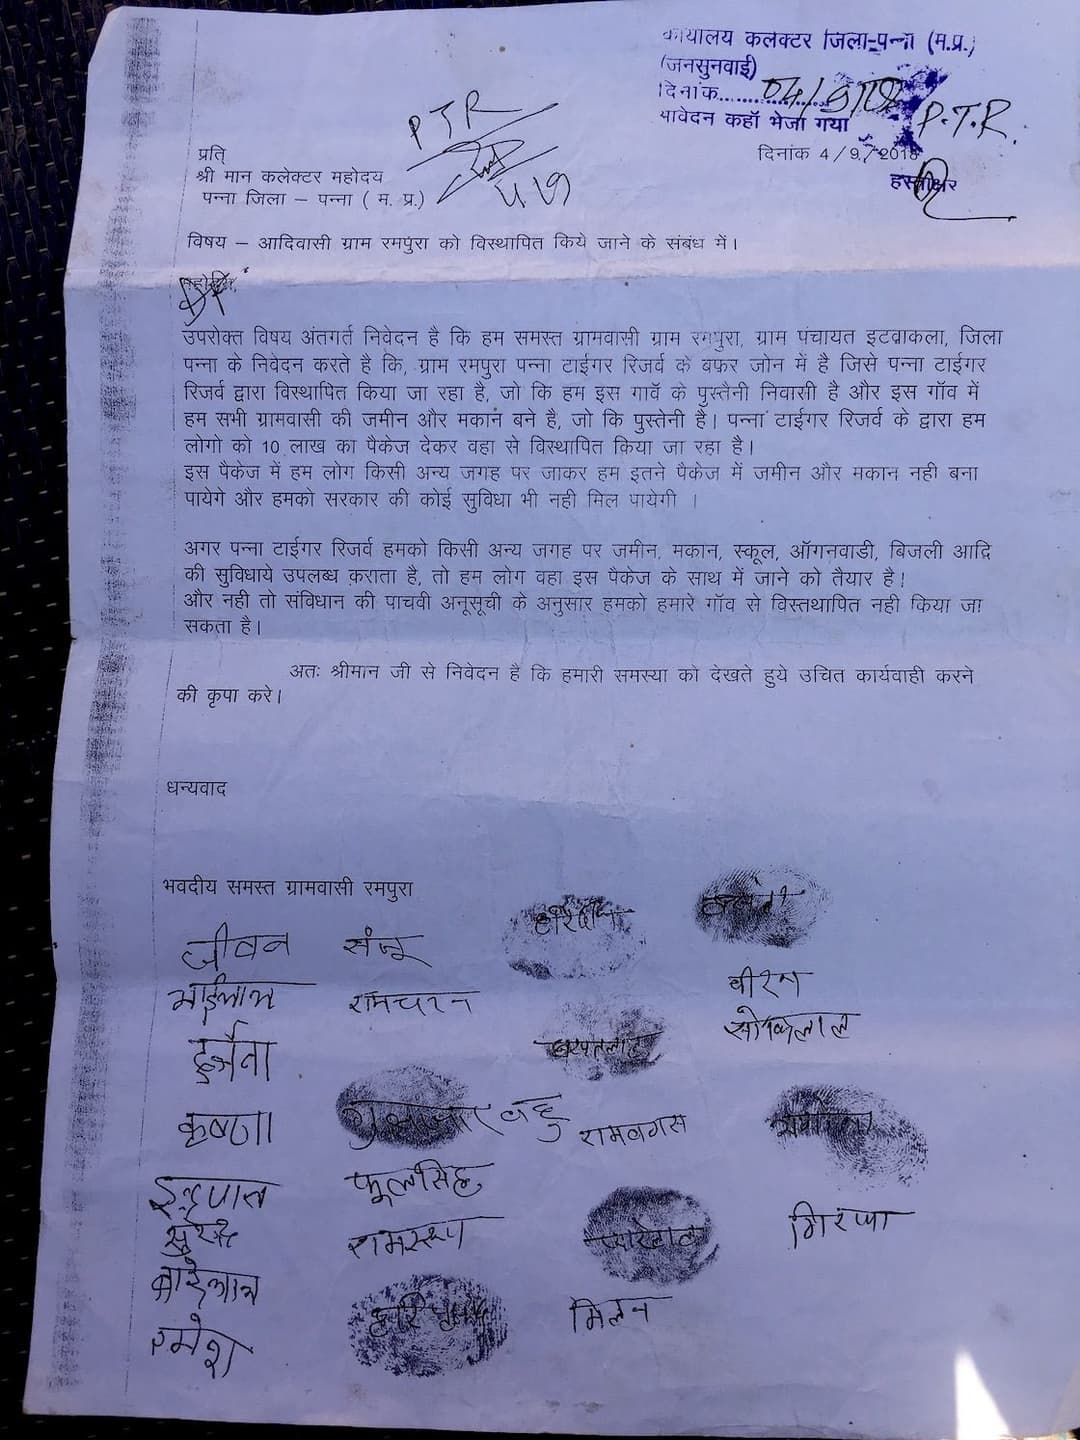 कार्यालय कलक्टर जिला-पन्ना (म.प्र.)
(जनसुनवाई)
दिनांक........04/9/18
आवेदन कहाँ भेजा गया P.T.R.
दिनांक 4/9/2018
हस्ताक्षर
PTR
प्रति
श्री मान कलेक्टर महोदय
पन्ना जिला – पन्ना ( म. प्र.)
विषय – आदिवासी ग्राम रमपुरा को विस्थापित किये जाने के संबंध में।
उपरोक्त विषय अंतगर्त निवेदन है कि हम समस्त ग्रामवासी ग्राम रमपुरा, ग्राम पंचायत इटवाकला, जिला
पन्ना के निवेदन करते है कि, ग्राम रमपुरा पन्ना टाईगर रिजर्व के बफर जोन में है जिसे पन्ना टाईगर
रिजर्व द्वारा विस्थापित किया जा रहा है, जो कि हम इस गावॅ के पुस्तैनी निवासी है और इस गॉव में
हम सभी ग्रामवासी की जमीन और मकान बने है, जो कि पुस्तेनी है। पन्ना टाईगर रिजर्व के द्वारा हम
लोगो को 10 लाख का पैकेज देकर वहा से विस्थापित किया जा रहा है।
इस पैकेज में हम लोग किसी अन्य जगह पर जाकर हम इतने पैकेज में जमीन और मकान नही बना
पायेगे और हमको सरकार की कोई सुविधा भी नही मिल पायेगी ।
अगर पन्ना टाईगर रिजर्व हमको किसी अन्य जगह पर जमीन, मकान, स्कूल, ऑगनवाडी, बिजली आदि
की सुविधाये उपलब्ध कराता है, तो हम लोग वहा इस पैकेज के साथ में जाने को तैयार है!
और नही तो संविधान की पाचवी अनूसूची के अनुसार हमको हमारे गॉव से विस्तथापित नही किया जा
सकता है।
अतः श्रीमान जी से निवेदन है कि हमारी समस्या को देखते हुये उचित कार्यवाही करने
की कृपा करे।
धन्यवाद
भवदीय समस्त ग्रामवासी रमपुरा
जीवन संजू
रामचरन वीरन
दुर्जना
कृष्णा रामवगस
फूलसिंह
रामस्रूप
रमेश मिलन